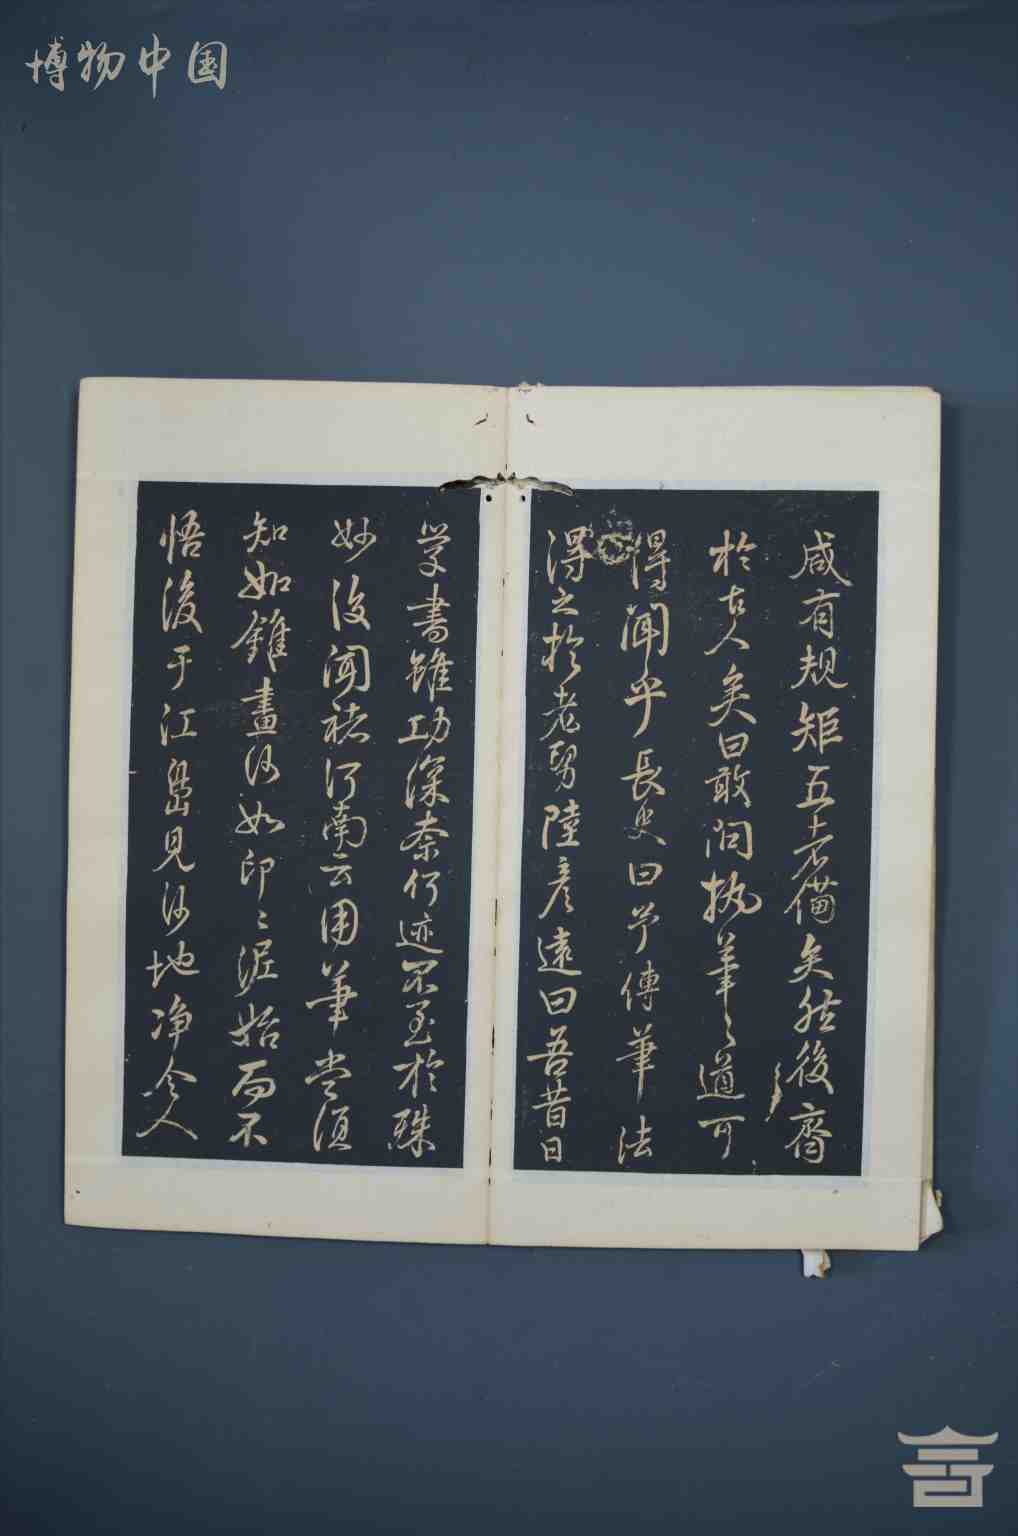 博物中国
咸有規矩五者備矣然後齊
於古人矣曰敢問執筆之道可
得聞乎長史曰予傳筆法
得之於老舅陸彦遠曰吾昔日
学書雖功深奈何迹不至於殊
妙後聞褚河南云用筆當須
知如錐畫沙如印〻泥始而不
悟後于江島見沙地净令人